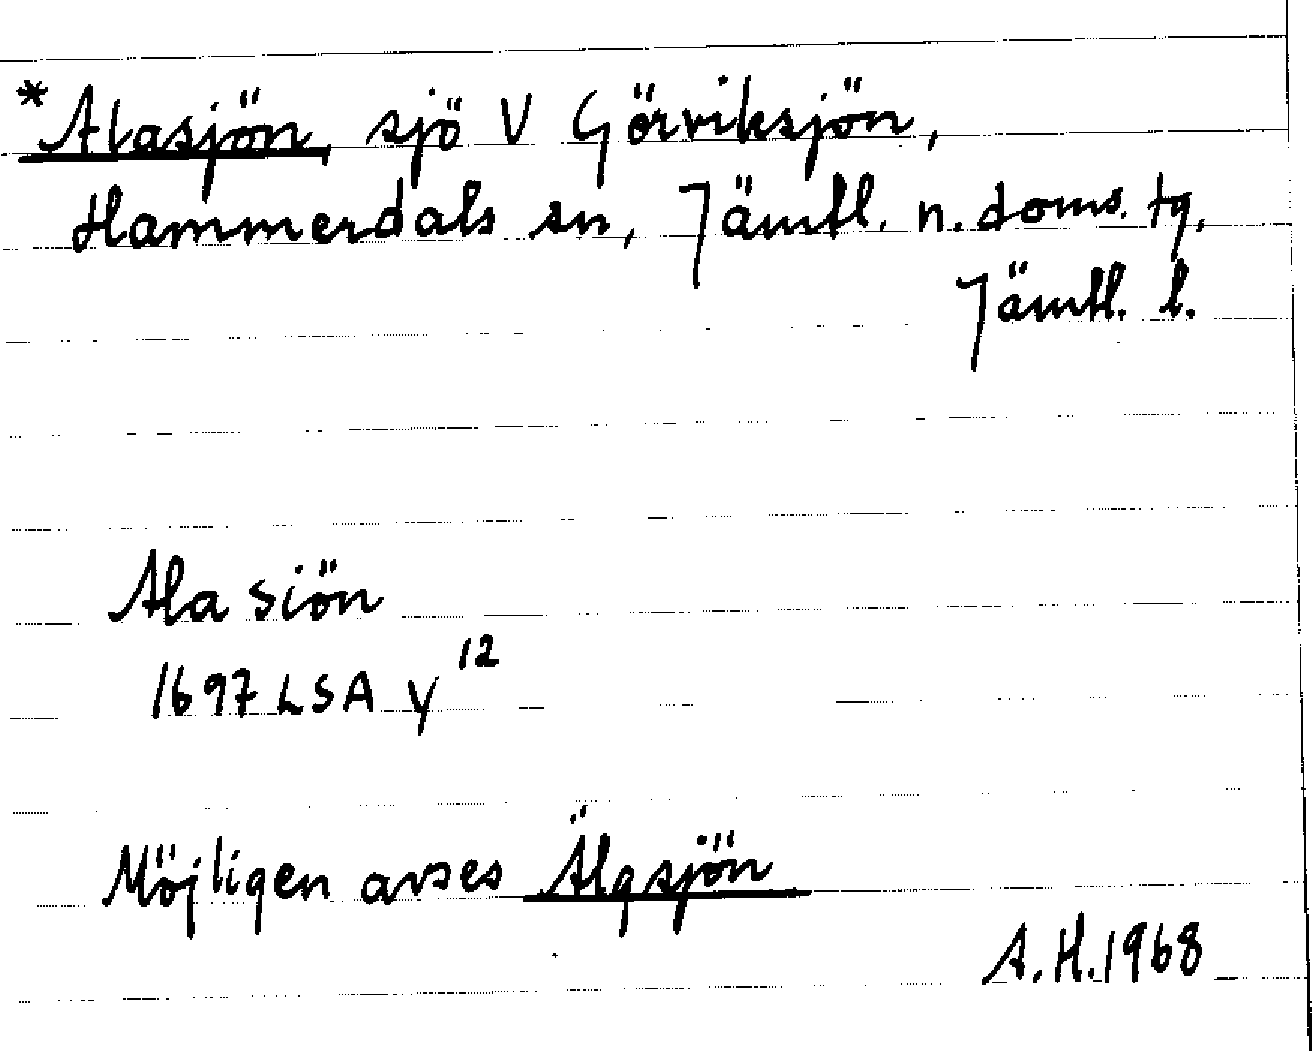 *Alasjön, sjö V Görviksjön,
Hammerdals sn, Jämtl. n. doms. tg,
Jämtl. l.
Ala siön
1697 LSA Y 12
Möjligen avses Älgsjön
A.H. 1968